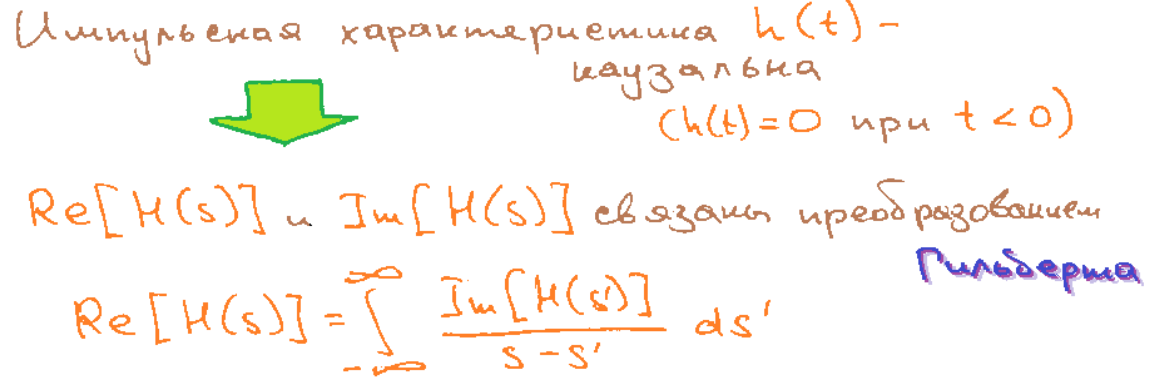 Импульсная характеристика h(t) -
каузальна
(h(t)=0 при t<0)
Re[H(s)] и Im[H(s)] связаны преобразованием
Гильберта
Re[H(s)] = ∫_{-∞}^{∞} Im[H(s')] / (s-s') ds'